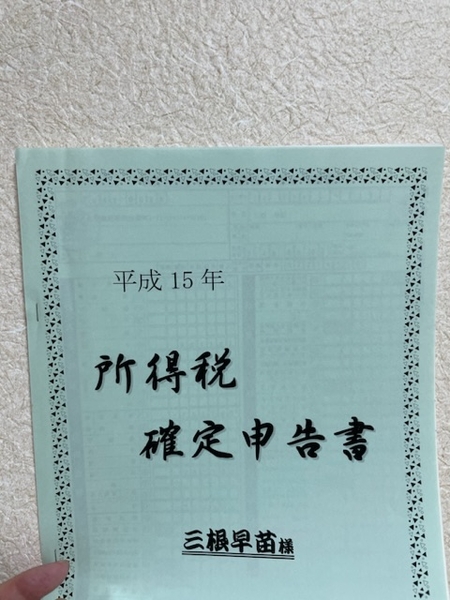 平成 15 年
所得税
確定申告書
三根早苗様